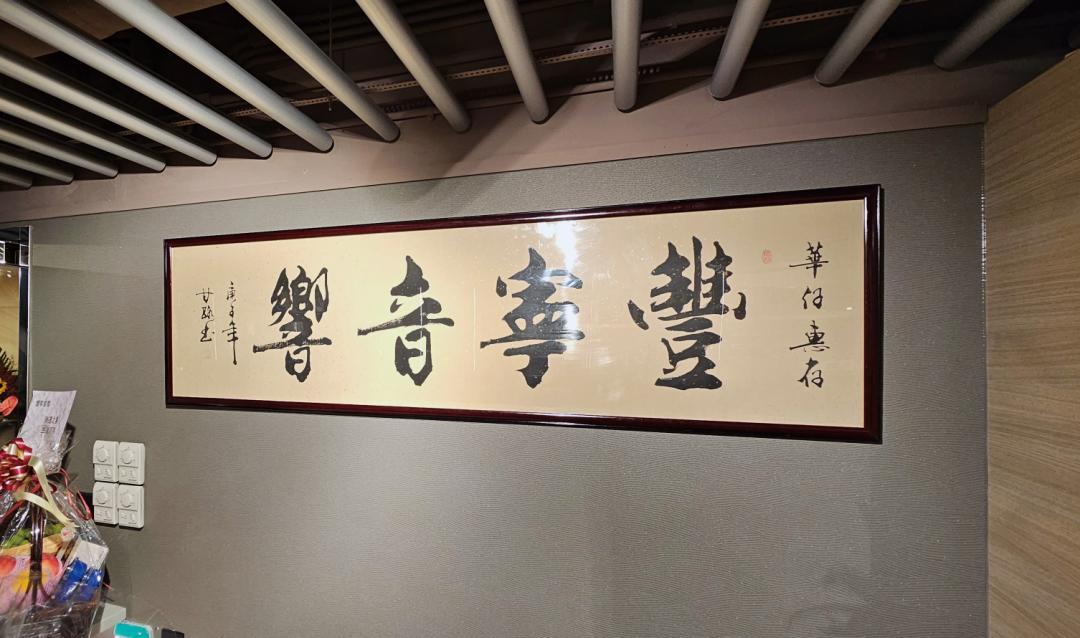 華仔惠存
豐寧音響
庚子年
甘繇書